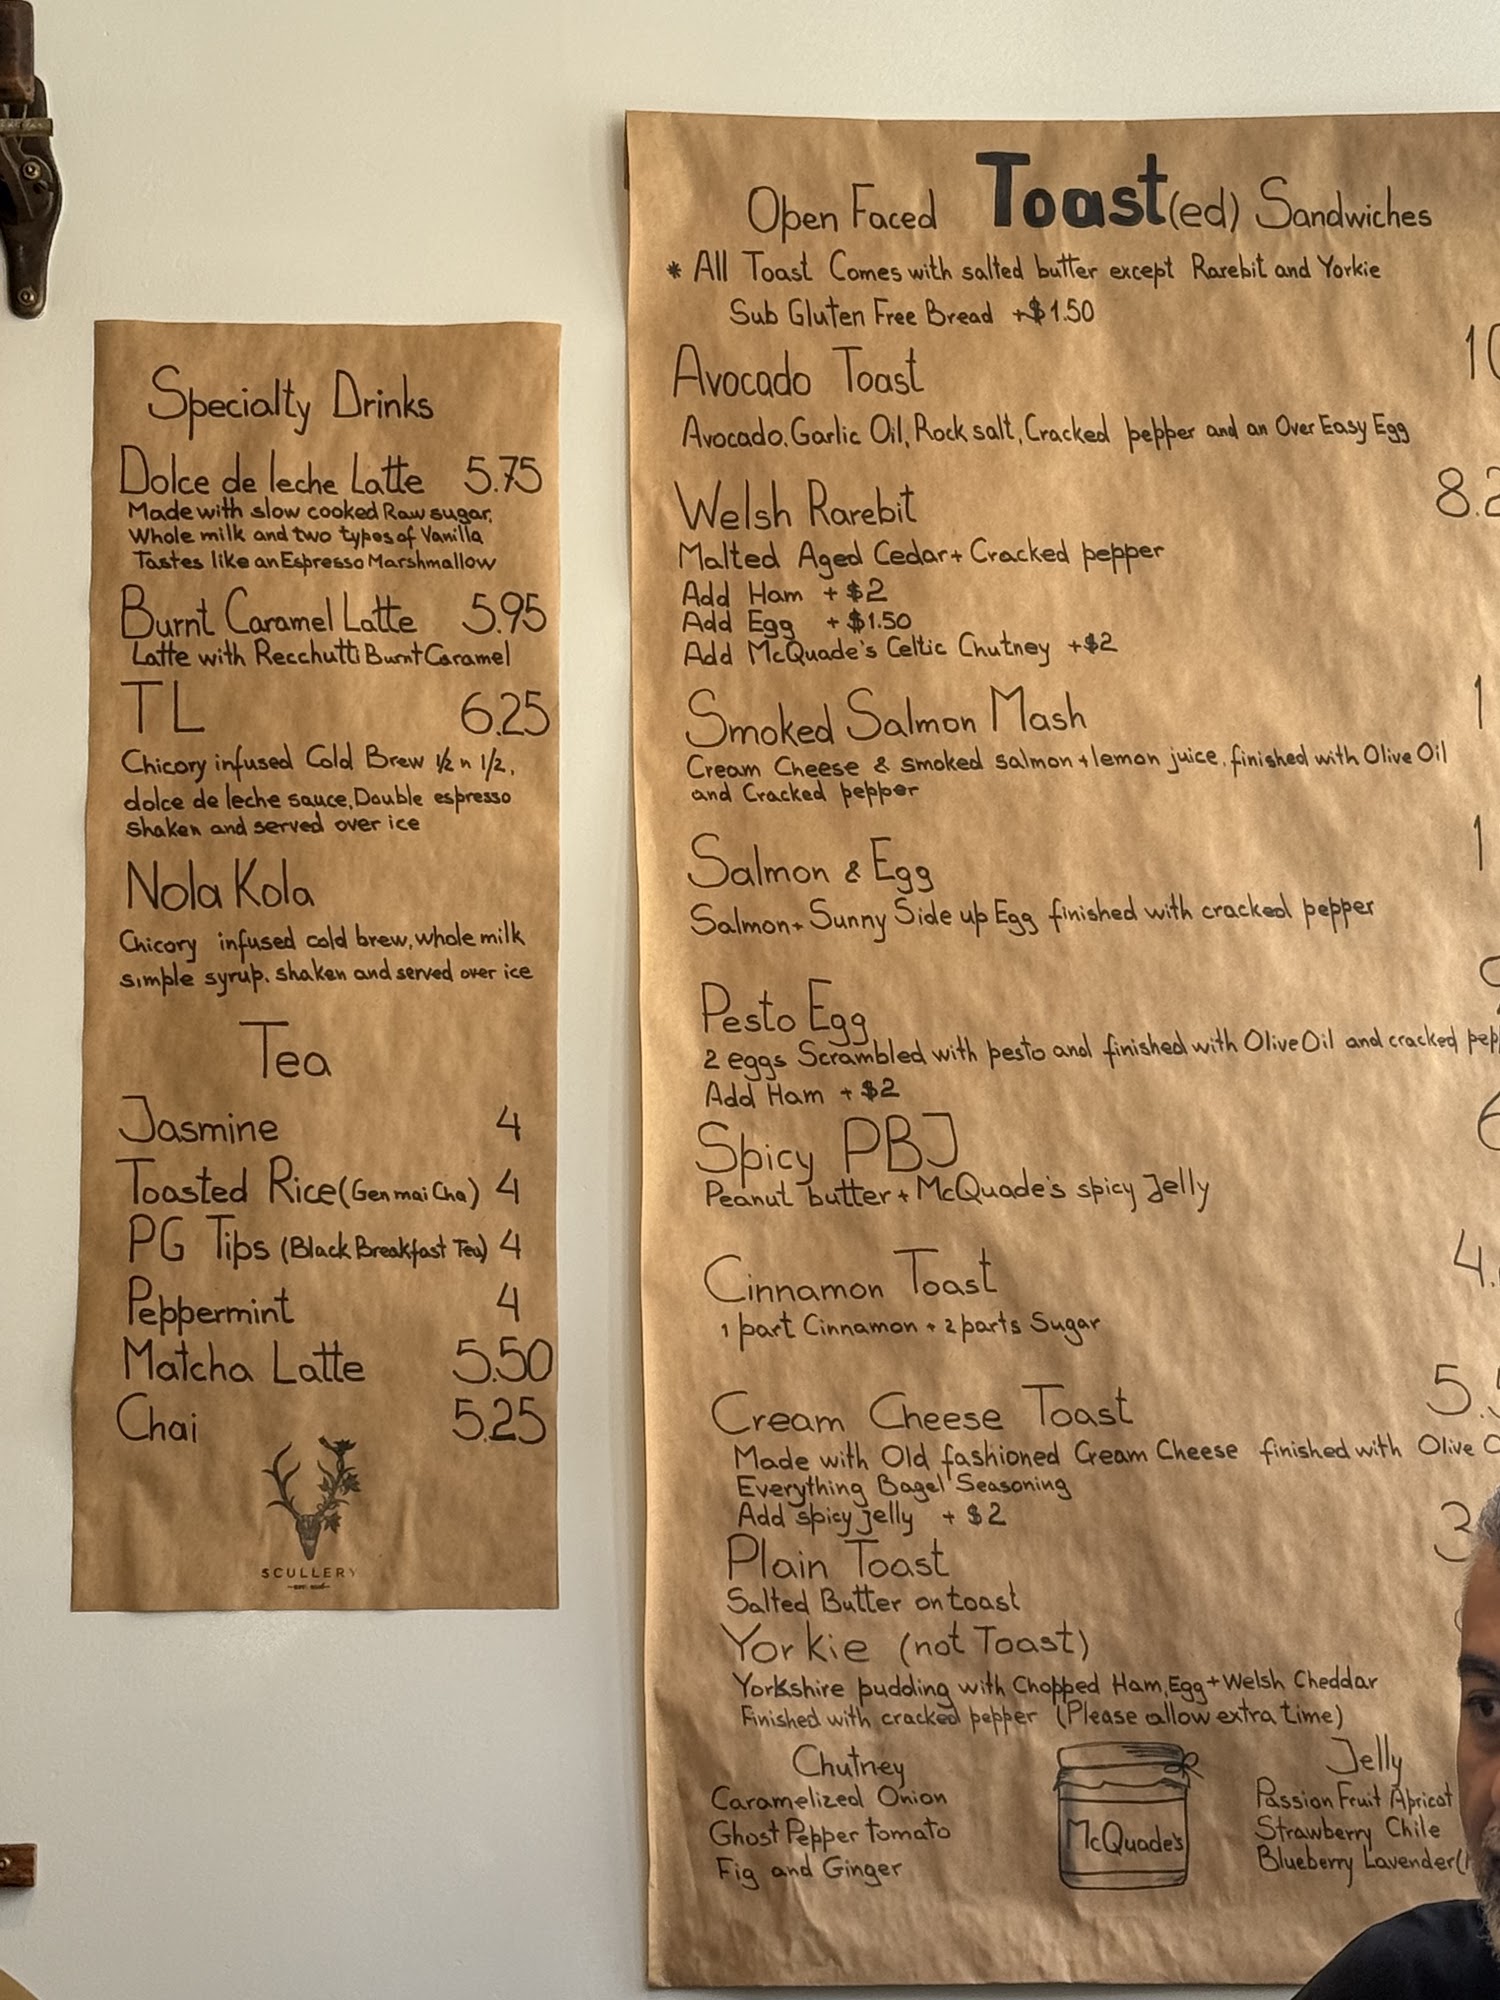 Specialty Drinks
Dolce de leche Latte 5.75
Made with slow cooked Raw sugar,
Whole milk and two types of Vanilla
Tastes like an Espresso Marshmallow
Burnt Caramel Latte 5.95
Latte with Recchutti Burnt Caramel
TL 6.25
Chicory infused Cold Brew 1/2 n 1/2,
dolce de leche sauce, Double espresso
Shaken and served over ice
Nola Kola
Chicory infused cold brew, whole milk
simple syrup. shaken and served over ice
Tea
Jasmine 4
Toasted Rice (Gen mai Cha) 4
PG Tips (Black Breakfast Tea) 4
Peppermint 4
Matcha Latte 5.50
Chai 5.25
SCULLERY
Open Faced Toast(ed) Sandwiches
* All Toast Comes with salted butter except Rarebit and Yorkie
Sub Gluten Free Bread +$1.50
Avocado Toast
Avocado, Garlic Oil, Rock salt, Cracked pepper and an Over Easy Egg
Welsh Rarebit
Malted Aged Cedar + Cracked pepper
Add Ham + $2
Add Egg + $1.50
Add McQuade's Celtic Chutney +$2
Smoked Salmon Mash
Cream Cheese & smoked salmon + lemon juice, finished with Olive Oil
and Cracked pepper
Salmon & Egg
Salmon + Sunny Side up Egg finished with cracked pepper
Pesto Egg
2 eggs Scrambled with pesto and finished with Olive Oil and cracked
Add Ham + $2
Spicy PBJ
Peanut butter + McQuade's spicy Jelly
Cinnamon Toast
1 part Cinnamon + 2 parts Sugar
Cream Cheese Toast
Made with Old fashioned Cream Cheese finished with Olive
Everything Bagel Seasoning
Add spicy jelly + $2
Plain Toast
Salted Butter on toast
Yorkie (not Toast)
Yorkshire pudding with Chopped Ham, Egg + Welsh Cheddar
Finished with cracked pepper (Please allow extra time)
Chutney
Caramelized Onion
Ghost Pepper tomato
Fig and Ginger
McQuade's
Jelly
Passion Fruit Apricot
Strawberry Chile
Blueberry Lavender